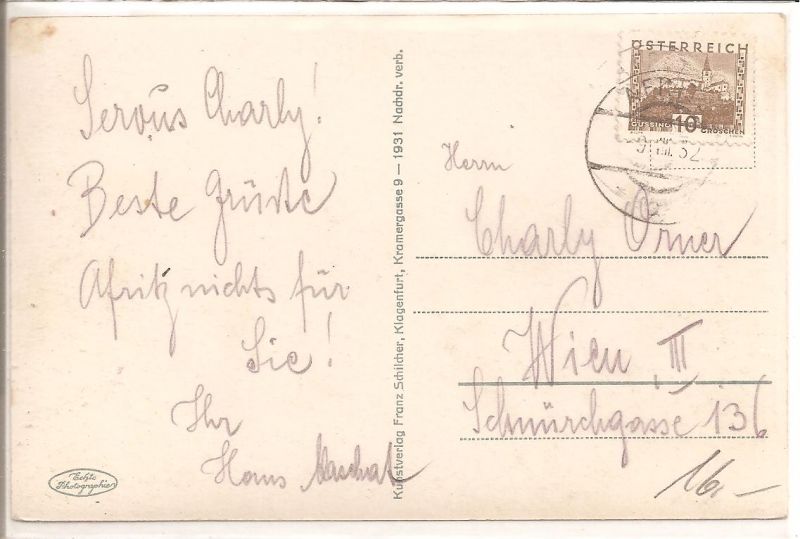 Servus Charly!
Beste Grüße
Afritz nichts für
Sie!
Ihr
Hans
Echte
Photographie
Kunstverlag Franz Schilcher, Klagenfurt, Kramergasse 9 – 1931 Nachdr. verb.
ÖSTERREICH
GÜSSING 10 GROSCHEN
32
Herrn
Charly Orner
Wien III
Schnürchgasse 136
16.–